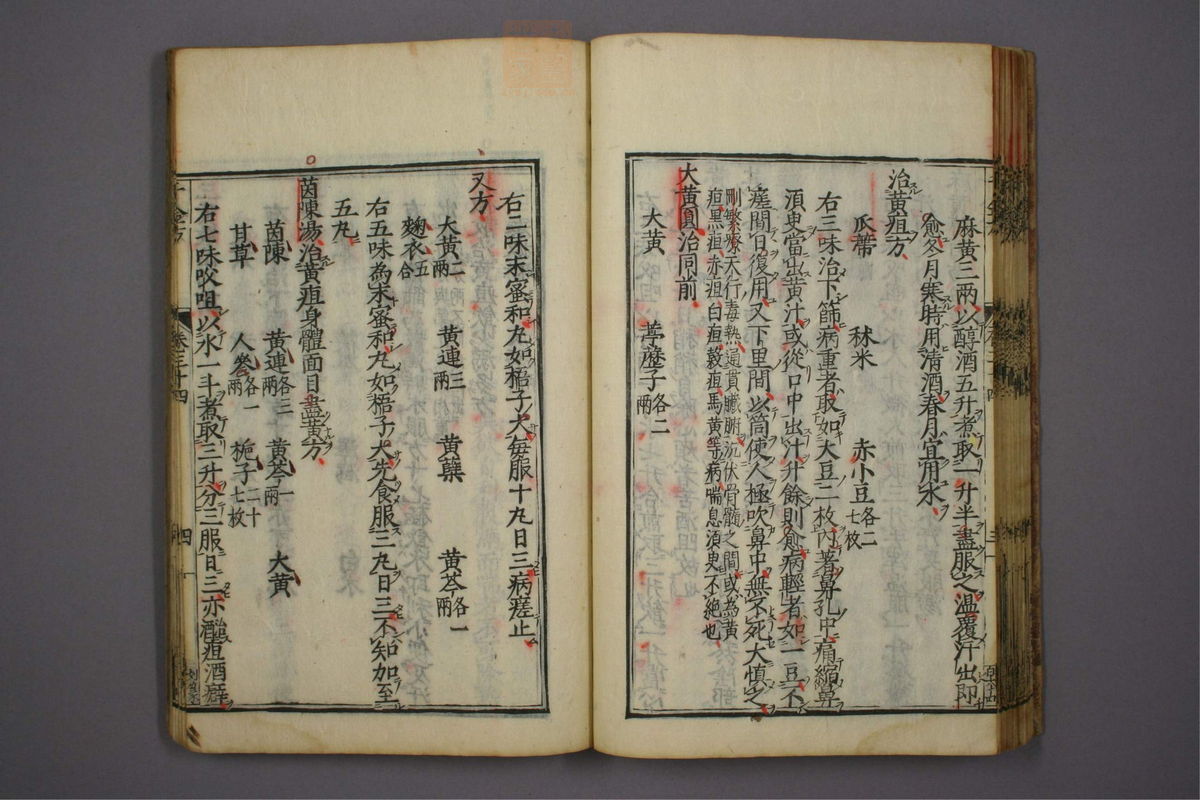 麻黃三兩以醇酒五升煮取一升半盡服之溫覆汗出即
愈冬月寒時用清酒春月宜用水
治黃疸方
瓜蔕 秫米 赤小豆各二七枚
右三味治下篩病重者取如大豆二枚內著鼻孔中痛縮鼻
須臾當出黃汁或從口中出汁升餘則愈病輕者如一豆不
瘥間日復用又下里間以筒使人極吹鼻中無不死大慎之
剛繁療天行毒熱通貫臟腑沉伏骨髓之間或為黃
疸黑疸赤疸白疸穀疸馬黃等病喘息須臾不絕也
大黃圓治同前
大黃 葶藶子各二兩
右二味末蜜和丸如梧子大每服十丸日三病瘥止
又方
大黃二兩 黃連三兩 黃蘗 黃芩各一兩
麴衣五合
右五味為末蜜和丸如梧子大先食服三丸日三不知加至
五丸
茵陳湯治黃疸身體面目盡黃方
茵陳 黃連各三兩 黃芩二兩 大黃
甘草 人參各一兩 梔子二十七枚
右七味㕮咀以水一斗煮取三升分三服日三亦治酒疸酒癖
千金方
卷三十四
四